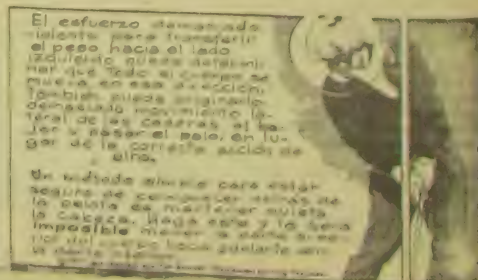 El esfuerzo demasiado
violento para transferir
el peso hacia el lado
izquierdo puede determi-
nar que todo el cuerpo se
mueva en esa dirección.
También puede originarlo
demasiado movimiento la-
teral de las caderas al ba-
jar y pasar el palo, en lu-
gar de la correcta acción de
Un método simple para estar
seguro de permanecer detrás de
la pelota es mantener quieta
la cabeza. Haga esto y le será
imposible mover la parte supe-
rior del cuerpo hacia adelante